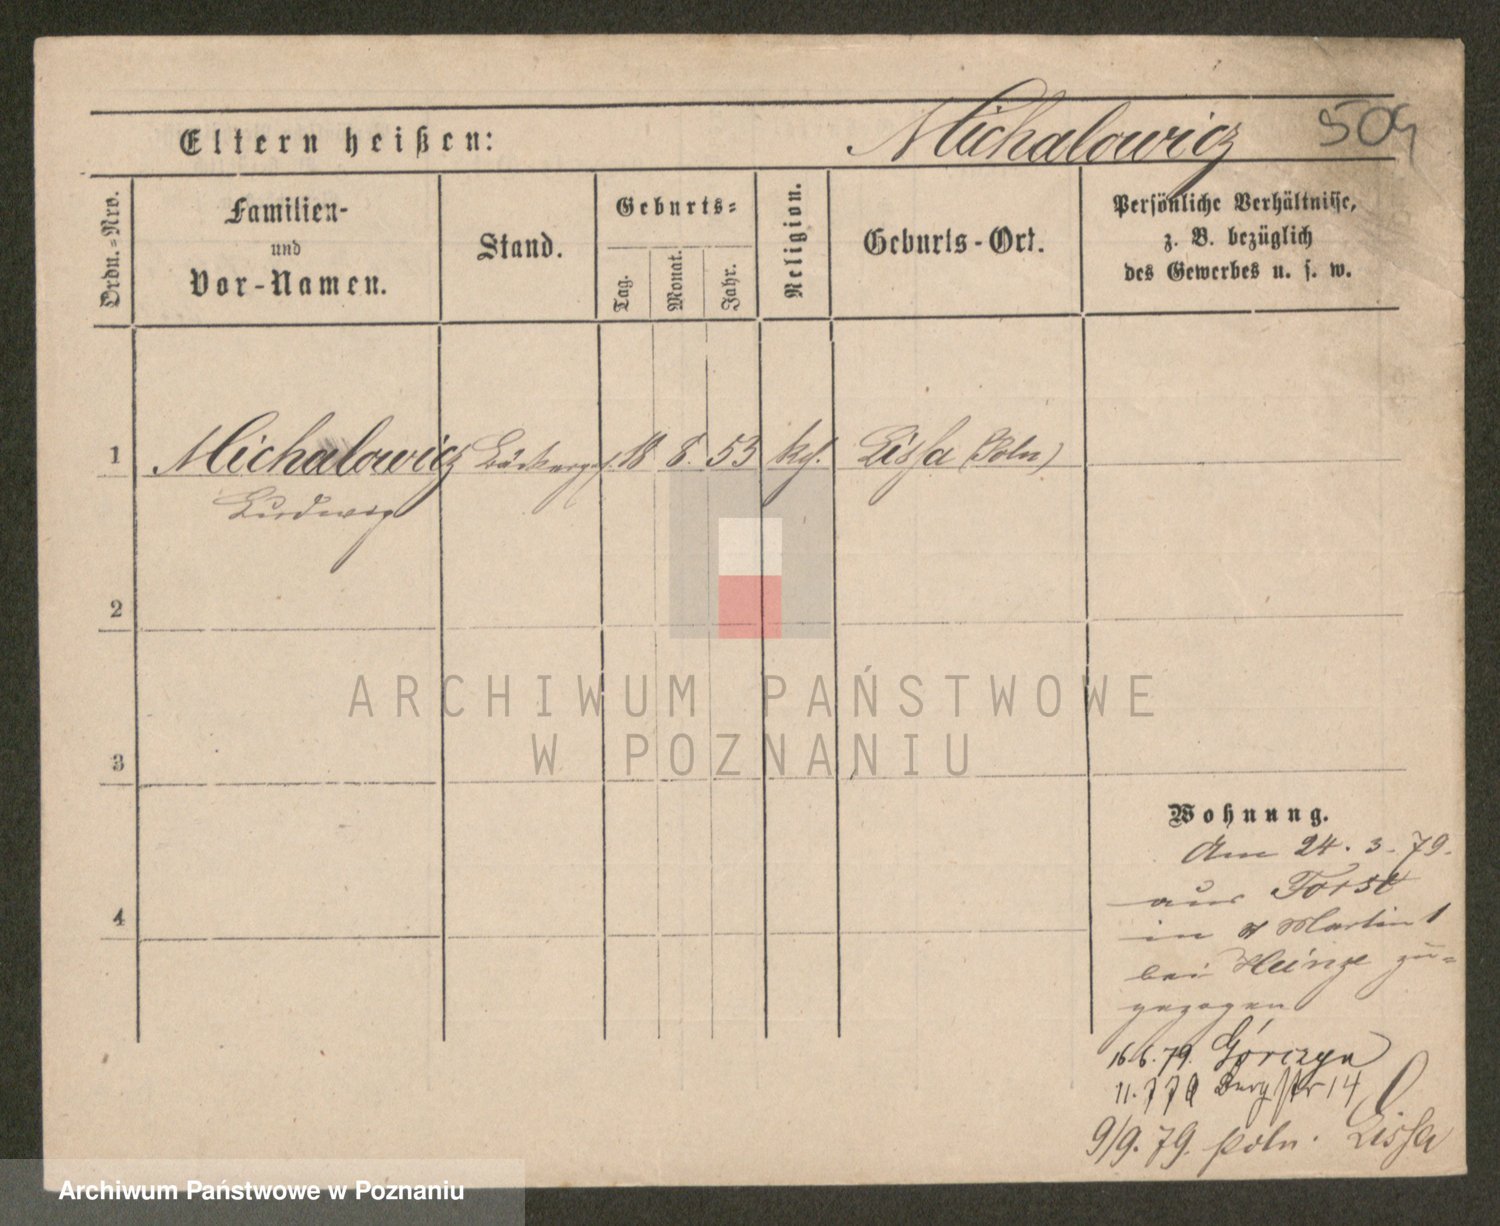 Michalowicz
504
Eltern heißen:
Ordn.=Nro.
Familien-
und
Vor-Namen.
Stand.
Geburts=
Tag.
Monat.
Jahr.
Religion.
Geburts-Ort.
Persönliche Verhältnisse,
z. B. bezüglich
des Gewerbes u. s. w.
1
Michalowicz Bäckerges. 18 8. 53 kth. Lissa (Poln)
Ludwig
2
ARCHIWUM PAŃSTWOWE
W POZNANIU
3
Wohnung.
Am 24. 3. 79.
aus Forst
in St Martin 1
bei Heinze zu=
gezogen
4
16.6.79. Górczyn
11.7 79 Bergstr 14
9/9. 79. poln. Lissa
Archiwum Państwowe w Poznaniu